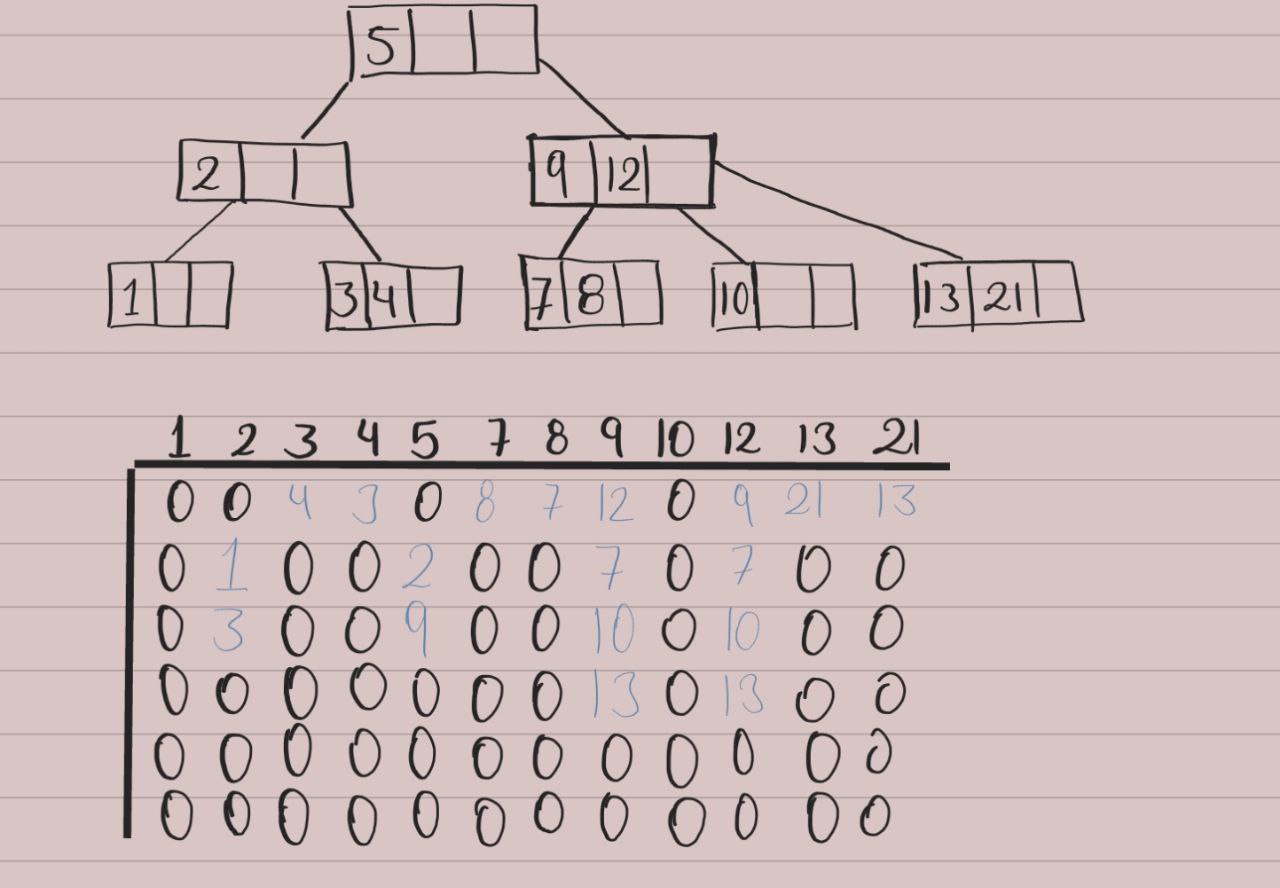 5
2 9 12
1 3 4 7 8 10 13 21
1 2 3 4 5 7 8 9 10 12 13 21
0 0 4 3 0 8 7 12 0 9 21 13
0 1 0 0 2 0 0 7 0 7 0 0
0 3 0 0 9 0 0 10 0 10 0 0
0 0 0 0 0 0 0 13 0 13 0 0
0 0 0 0 0 0 0 0 0 0 0 0
0 0 0 0 0 0 0 0 0 0 0 0